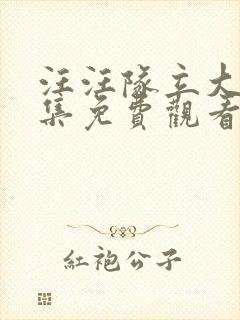 汪汪隊立大
集免費觀看
紅袍公子